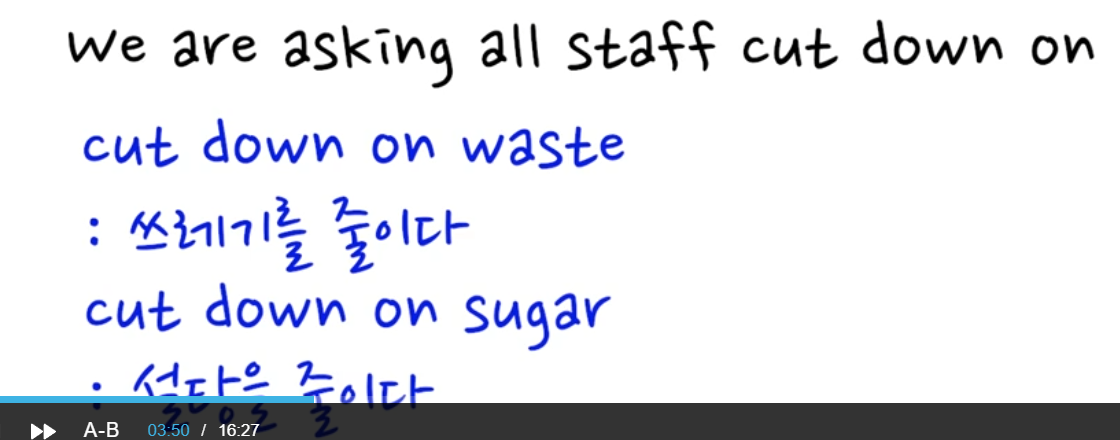 we are asking all staff cut down on
cut down on waste
: 쓰레기를 줄이다
cut down on sugar
: 설탕을 줄이다
A-B 03:50 / 16:27